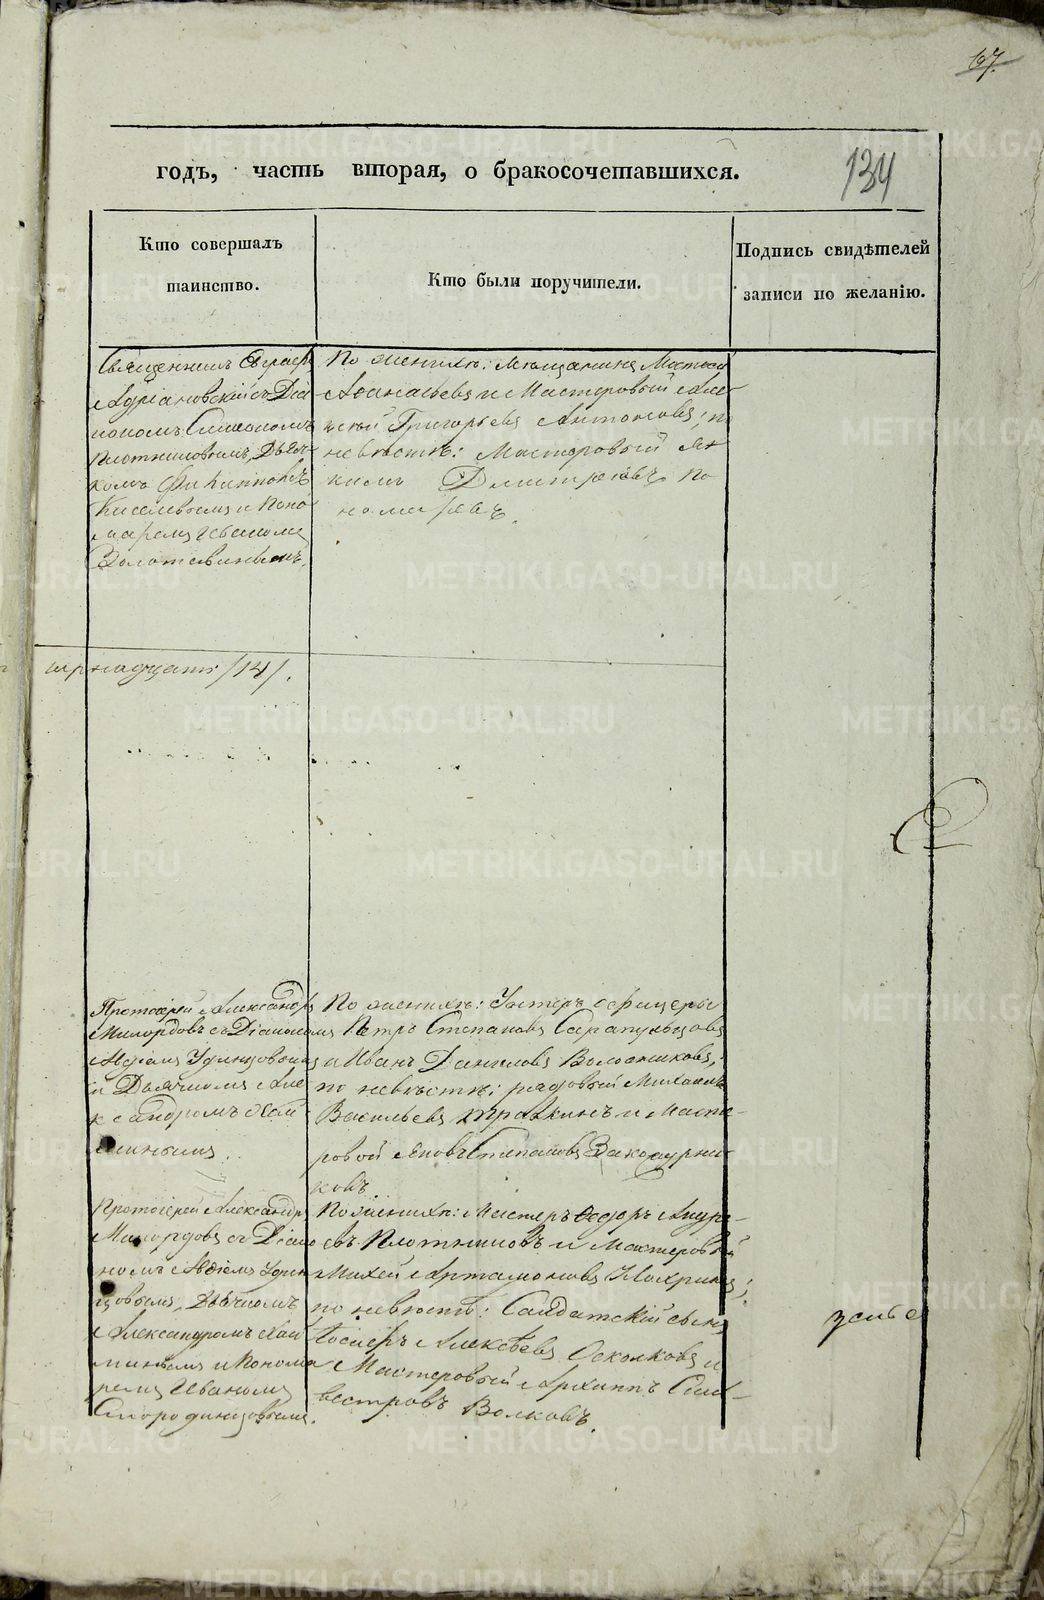 67.
годъ, часть вторая, о бракосочетавшихся.
134
Кто совершалъ
таинство.
Кто были поручители.
Подпись свидѣтелей
записи по желанію.
Священникъ
Адріановскій съ Діа
кономъ Симеономъ
Плотниковымъ, Дьяч-
комъ Филиппомъ
Киселевымъ и Поно
маремъ Иваномъ
Золотавинымъ.
По женихѣ: Мѣщанинъ Матвей
Афанасьевъ и Мастеровой Але-
ксѣй Григорьевъ Антоновъ; по
невѣстѣ: Мастеровой Я
кимъ Дмитріевъ По
номаревъ.
надцать /14/.
Протоіерей Александръ
Милордовъ съ Діакономъ
Авдіемъ Удинцовымъ
и Дьячкомъ Але
ксандромъ Хам
минымъ.
По женихѣ: Унтеръ офицеры
Петръ Степановъ Сарапульцовъ
и Иванъ Даниловъ Волосниковъ,
по невѣстѣ: рядовой Михаилъ
Васильевъ Травкинъ и Масте-
ровой Яковъ Степановъ Закожурни-
ковъ
Протоіерей Александръ
Милордовъ съ Діако
номъ Авдіемъ Удин
цовымъ, Дьячкомъ
Александромъ Хам
минымъ и Понома
ремъ Иваномъ
Смородинцовымъ.
По женихѣ: Мастеръ Ѳедоръ Андре-
евъ Плотниковъ и Мастеровой
Михей Артамоновъ
по невѣстѣ: Салдатский сынъ
Алексѣевъ Осколковъ и
Мастеровый Архиппъ Силь-
вестровъ Волковъ.
METRIKI.GASO-URAL.RU